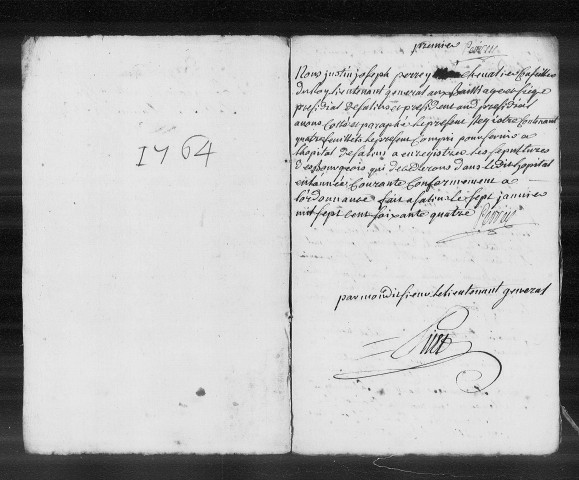 1764
premier Perrey
Nous justin joseph perrey Chevalier Conseiller
du Roy Lieutenant general aux Bailliage et siege
presidial de salins et president aud presidial
avons Cotté et paraphé le present Registre Contenant
quatre feuillets le present Compris pour servir a
lhopital de salins a enregistrer les sepultures
des Bourgeois qui decederons dans ledit hopital
en lannée Courante Conformement a
l'ordonnance fait a salins le sept janvier
mil sept Cent soixante quatre Perrey
par mondit sieur le lieutenant general